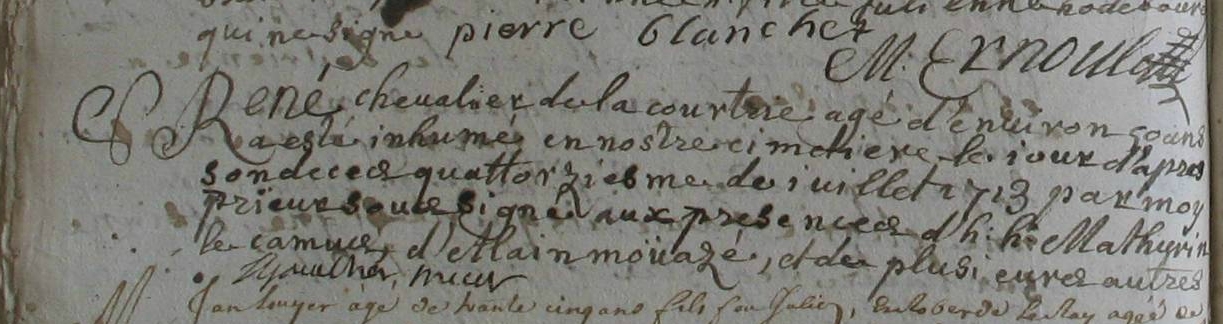 qui ne signe pierre blanchet
M. Ernoul
René chevalier de la courtrie agé d'enuiron 50 ans
a esté inhumé en nostre cimetiere le iour d'apres
son deces quattorziesme de iuillet 1713 par moy
prieur soubsigné aux presences d'h. h. Mathurin
le camus d'Allain moüazé, et de plusieurs autres
prieur
agé de trante cinq ans fils feu Julien, agée de